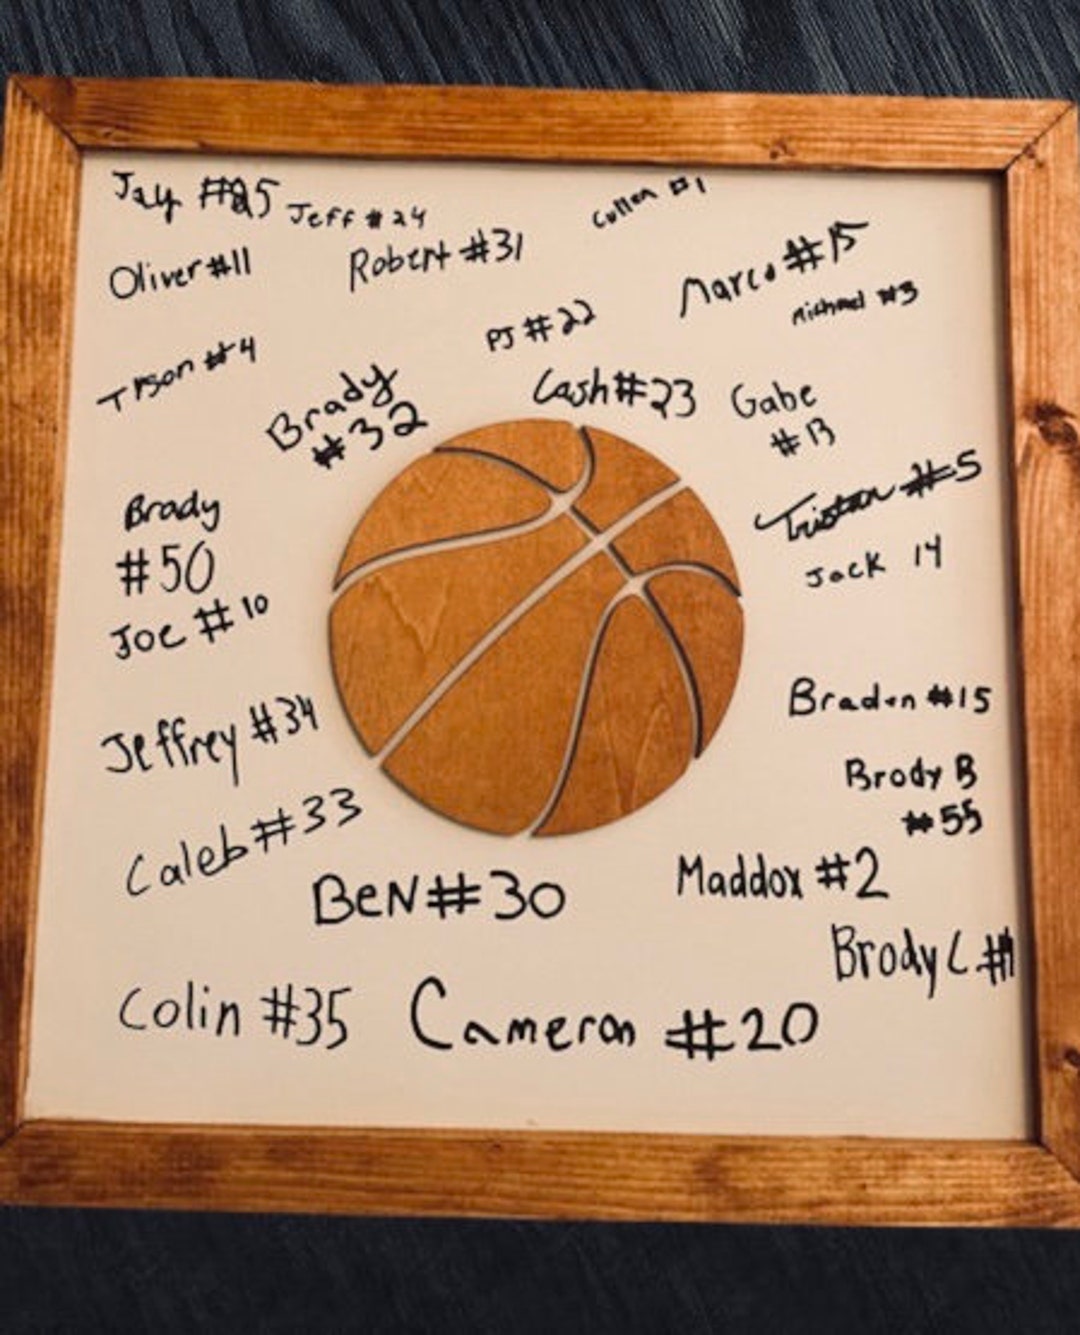 Jay #25
Jeff #24
Cullen #1
Oliver #11
Robert #31
Marco #15
Michael #3
PJ #22
Tyson #4
Brady
#32
Cash #23
Gabe
#13
Tristan #5
Brady
#50
Jack 14
Joe #10
Braden #15
Jeffrey #34
Brody B
#55
Caleb #33
Maddox #2
BeN #30
Brody C.
Colin #35
Cameron #20